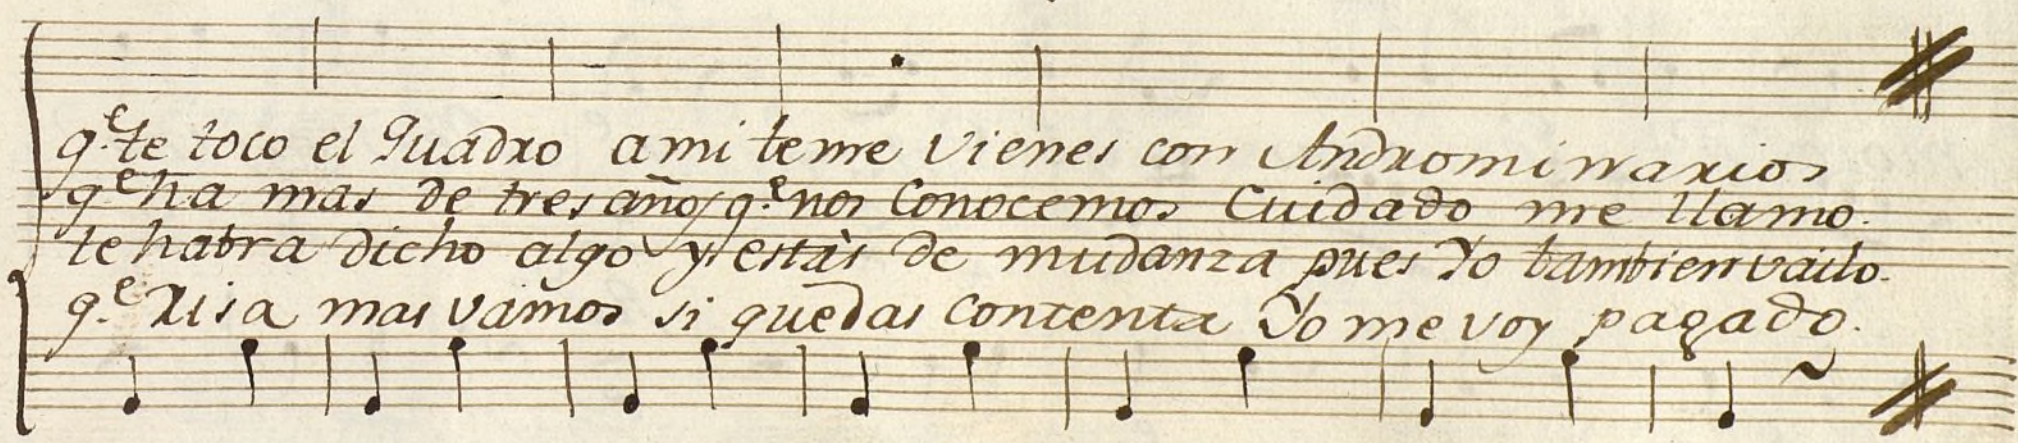 q.e te toco el Quadro ami teme vienes con Androminarios
q.e ha mas de tres años q.e nos Conocemos Cuidado me llamo.
te habra dicho algo y estàs de mudanza pues Yo tambien vailo.
q.e Risa mas vamos si quedas Contenta Yo me voy pagado.